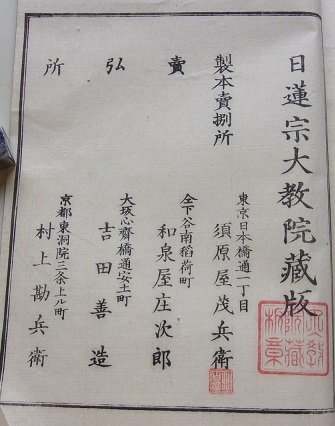 日蓮宗大教院藏版
製本賣捌所
東京日本橋通一丁目
須原屋茂兵衛
仝下谷南稻荷町
和泉屋庄次郎
賣弘所
大坂心齋橋通安土町
吉田善造
京都東洞院三条上ル町
村上勘兵衛